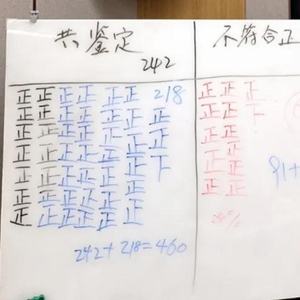 共鉴定 不符合正
242
正正正正正正 218 正正正
正正正正正正正 正正下
正正正正正正正 正正
正正正正正正正 正正
正正正正正正下 正正 91+
正正正正正正 正正
正正正正正正
242+218=460